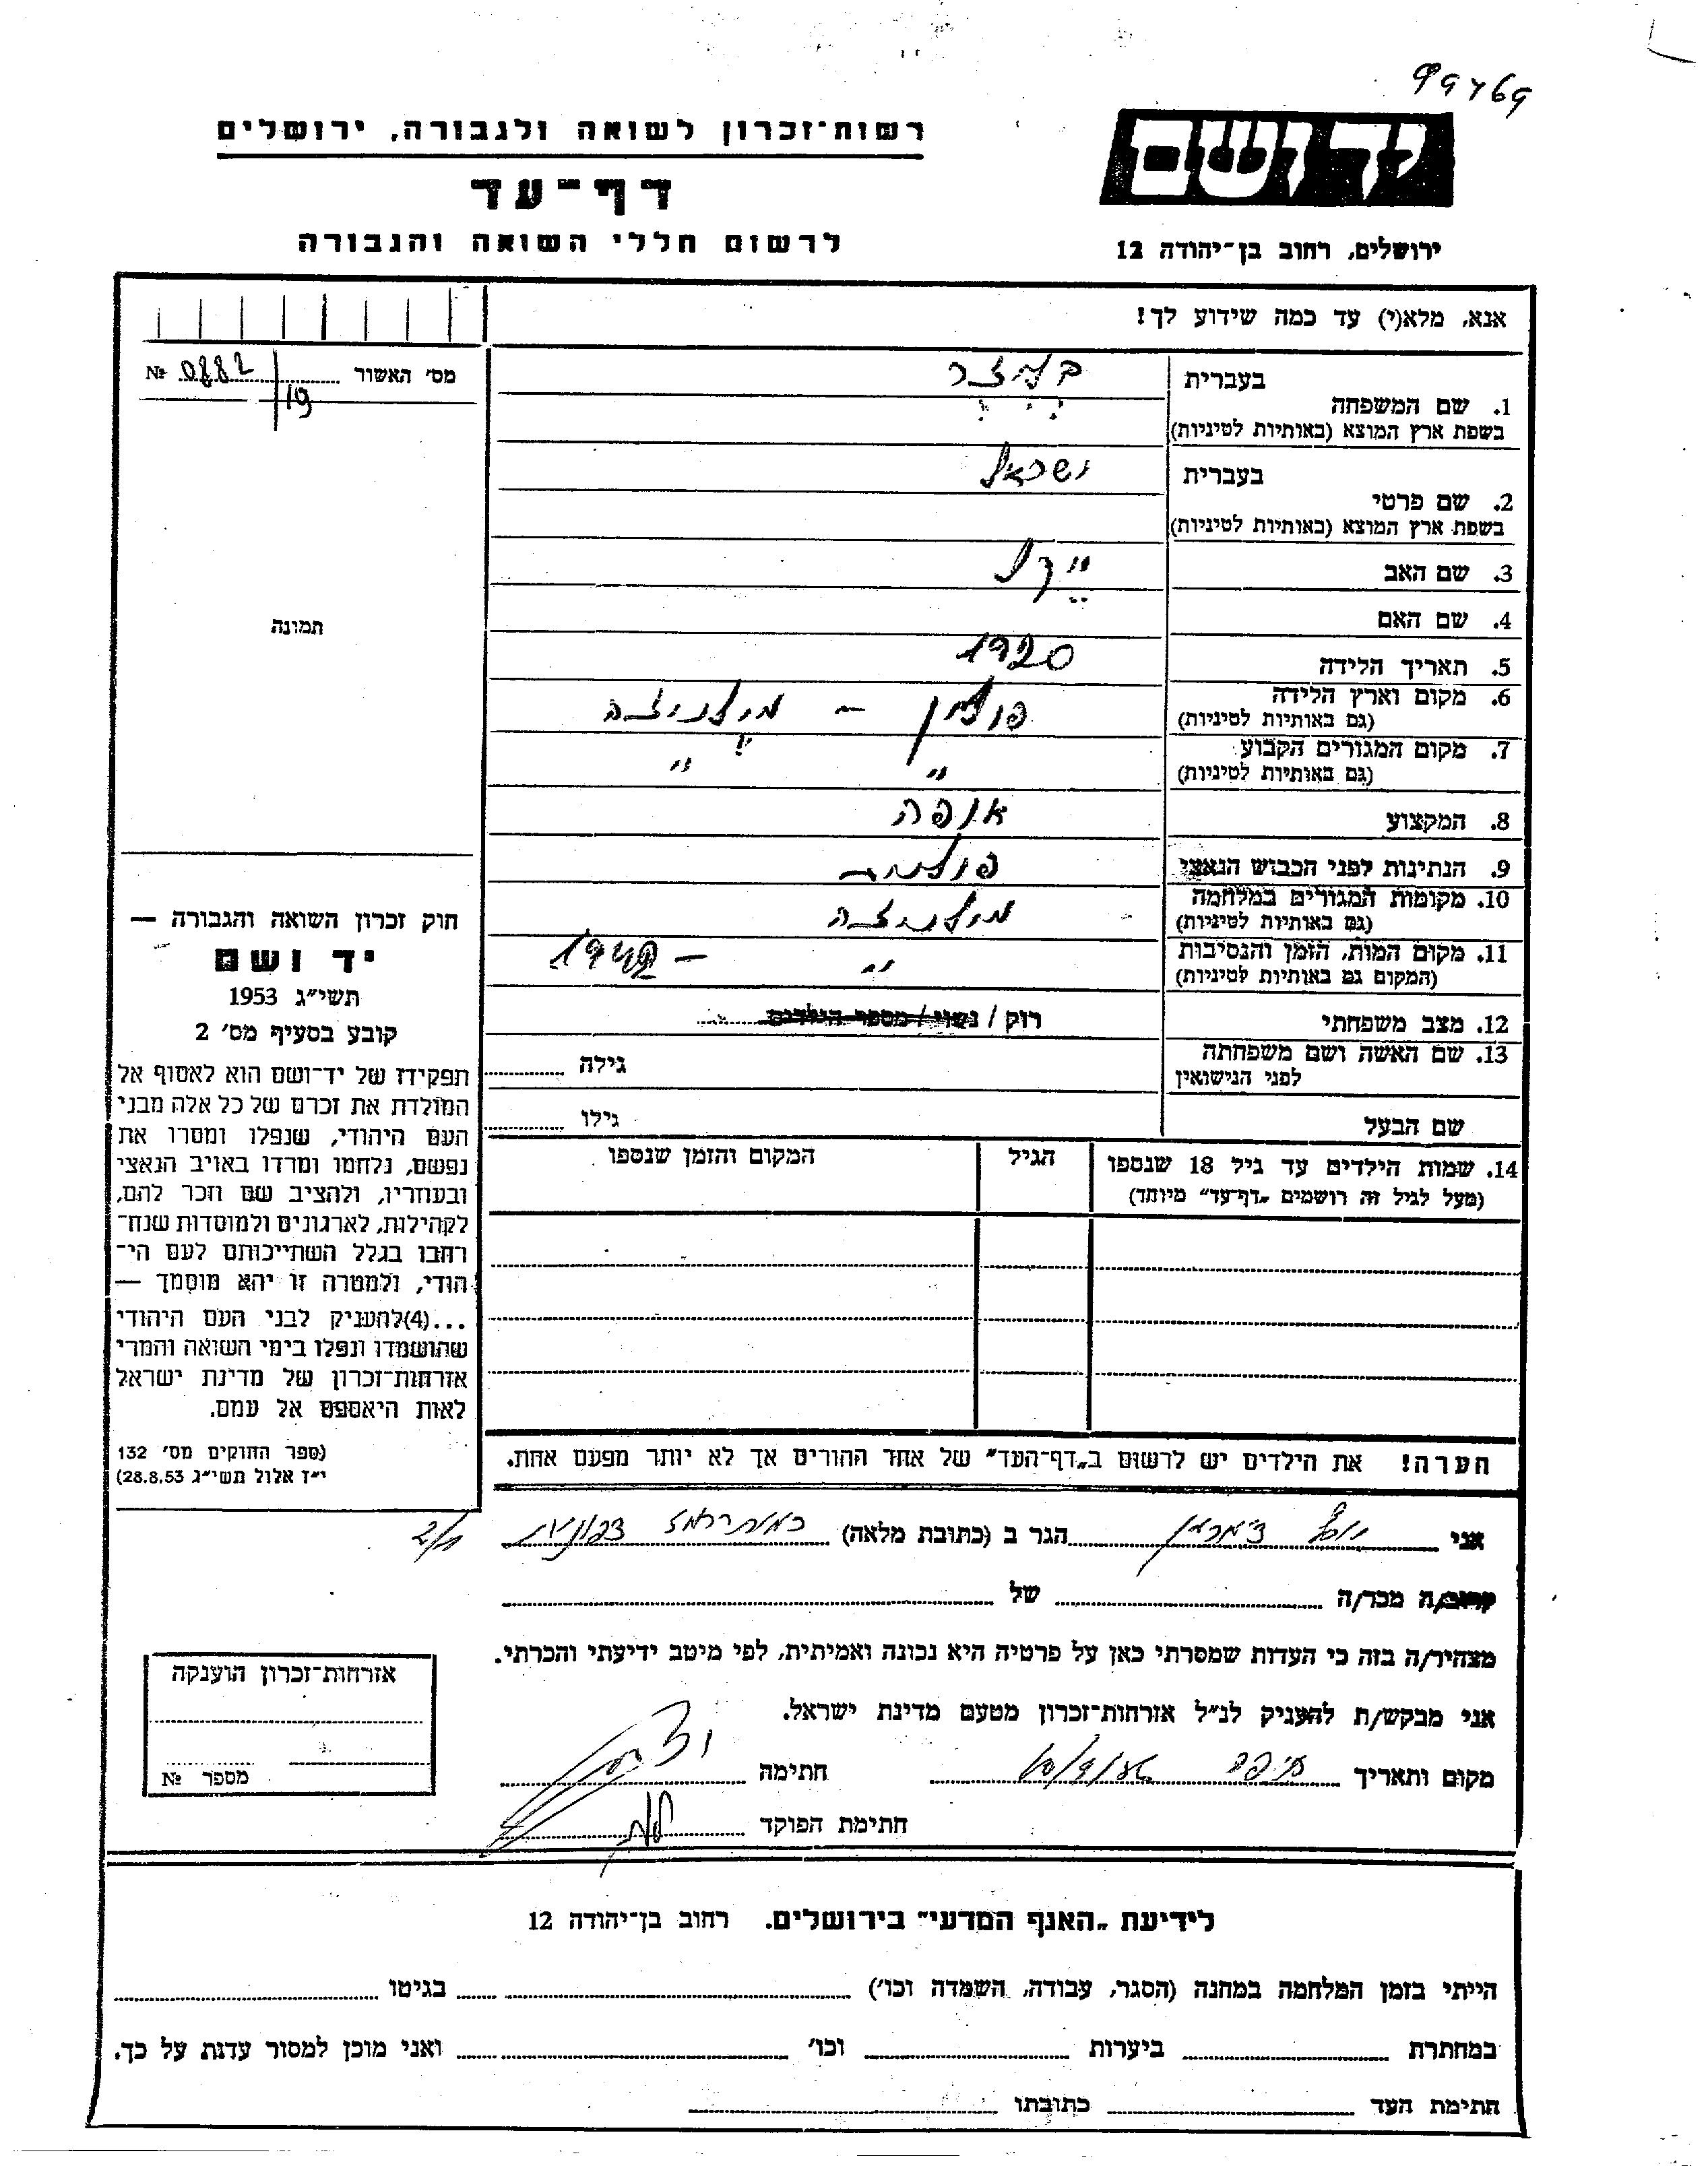 רשות־זכרון לשואה ולגבורה, ירושלים
דף־עד
לרשום חללי השואה והגבורה
יד ושם
ירושלים, רחוב בן־יהודה 12
אנא, מלא(י) עד כמה שידוע לך!
מס' האשור № 0882
19
בעברית
1. שם המשפחה
בשפת ארץ המוצא (באותיות לטיניות)
בעברית ישראל
2. שם פרטי
בשפת ארץ המוצא (באותיות לטיניות)
3. שם האב
4. שם האם
5. תאריך הלידה 1920
6. מקום וארץ הלידה פולין – מילניצה
(גם באותיות לטיניות)
7. מקום המגורים הקבוע " "
(גם באותיות לטיניות)
8. המקצוע אופה
9. הנתינות לפני הכבוש הנאצי פולנית
10. מקומות המגורים במלחמה מילניצה
(גם באותיות לטיניות)
11. מקום המות, הזמן והנסיבות " –
(המקום גם באותיות לטיניות)
12. מצב משפחתי רוק / נשוי / מספר הילדים
13. שם האשה ושם משפחתה גילה
לפני הנישואין
שם הבעל גילו
14. שמות הילדים עד גיל 18 שנספו הגיל המקום והזמן שנספו
(מעל לגיל זה רושמים „דף־עד" מיוחד)
הערה! את הילדים יש לרשום ב„דף־העד" של אחד ההורים אך לא יותר מפעם אחת.
תמונה
חוק זכרון השואה והגבורה —
יד ושם
תשי"ג 1953
קובע בסעיף מס' 2
תפקידו של יד־ושם הוא לאסוף אל
המולדת את זכרם של כל אלה מבני
העם היהודי, שנפלו ומסרו את
נפשם, נלחמו ומרדו באויב הנאצי
ובעוזריו, ולהציב שם וזכר להם,
לקהילות, לארגונים ולמוסדות שנח־
רחבו בגלל השתייכותם לעם הי־
הודי, ולמטרה זו יהא מוסמך —
...(4)להעניק לבני העם היהודי
שהושמדו ונפלו בימי השואה והמרי
אזרחות־זכרון של מדינת ישראל
לאות היאספם אל עמם.
(ספר החוקים מס' 132
י"ז אלול תשי"ג 28.8.53)
אני יוסף הגר ב (כתובת מלאה)
קרוב/ה מכר/ה של
מצהיר/ה בזה כי העדות שמסרתי כאן על פרטיה היא נכונה ואמיתית, לפי מיטב ידיעתי והכרתי.
אני מבקש/ת להעניק לנ"ל אזרחות־זכרון מטעם מדינת ישראל.
מקום ותאריך חיפה חתימה
חתימת הפוקד
אזרחות־זכרון הוענקה
מספר №
לידיעת „האנף המדעי" בירושלים. רחוב בן־יהודה 12
הייתי בזמן המלחמה במחנה (הסגר, עבודה, השמדה וכו') בגיטו
במחתרת ביערות וכו' ואני מוכן למסור עדות על כך.
חתימת העד כתובתו